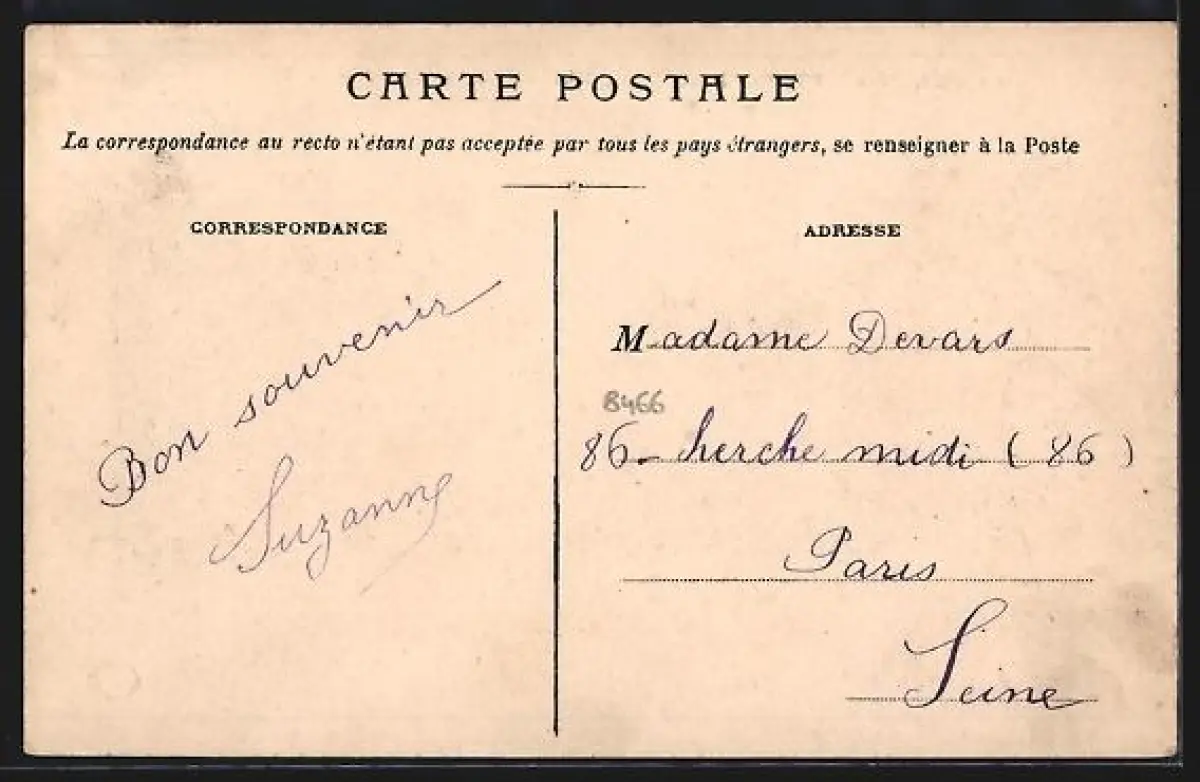 CARTE POSTALE
La correspondance au recto n'étant pas acceptée par tous les pays étrangers, se renseigner à la Poste
CORRESPONDANCE
Bon souvenir
Suzanne
ADRESSE
Madame Devars
8466
86 - herche midi (86)
Paris
Seine